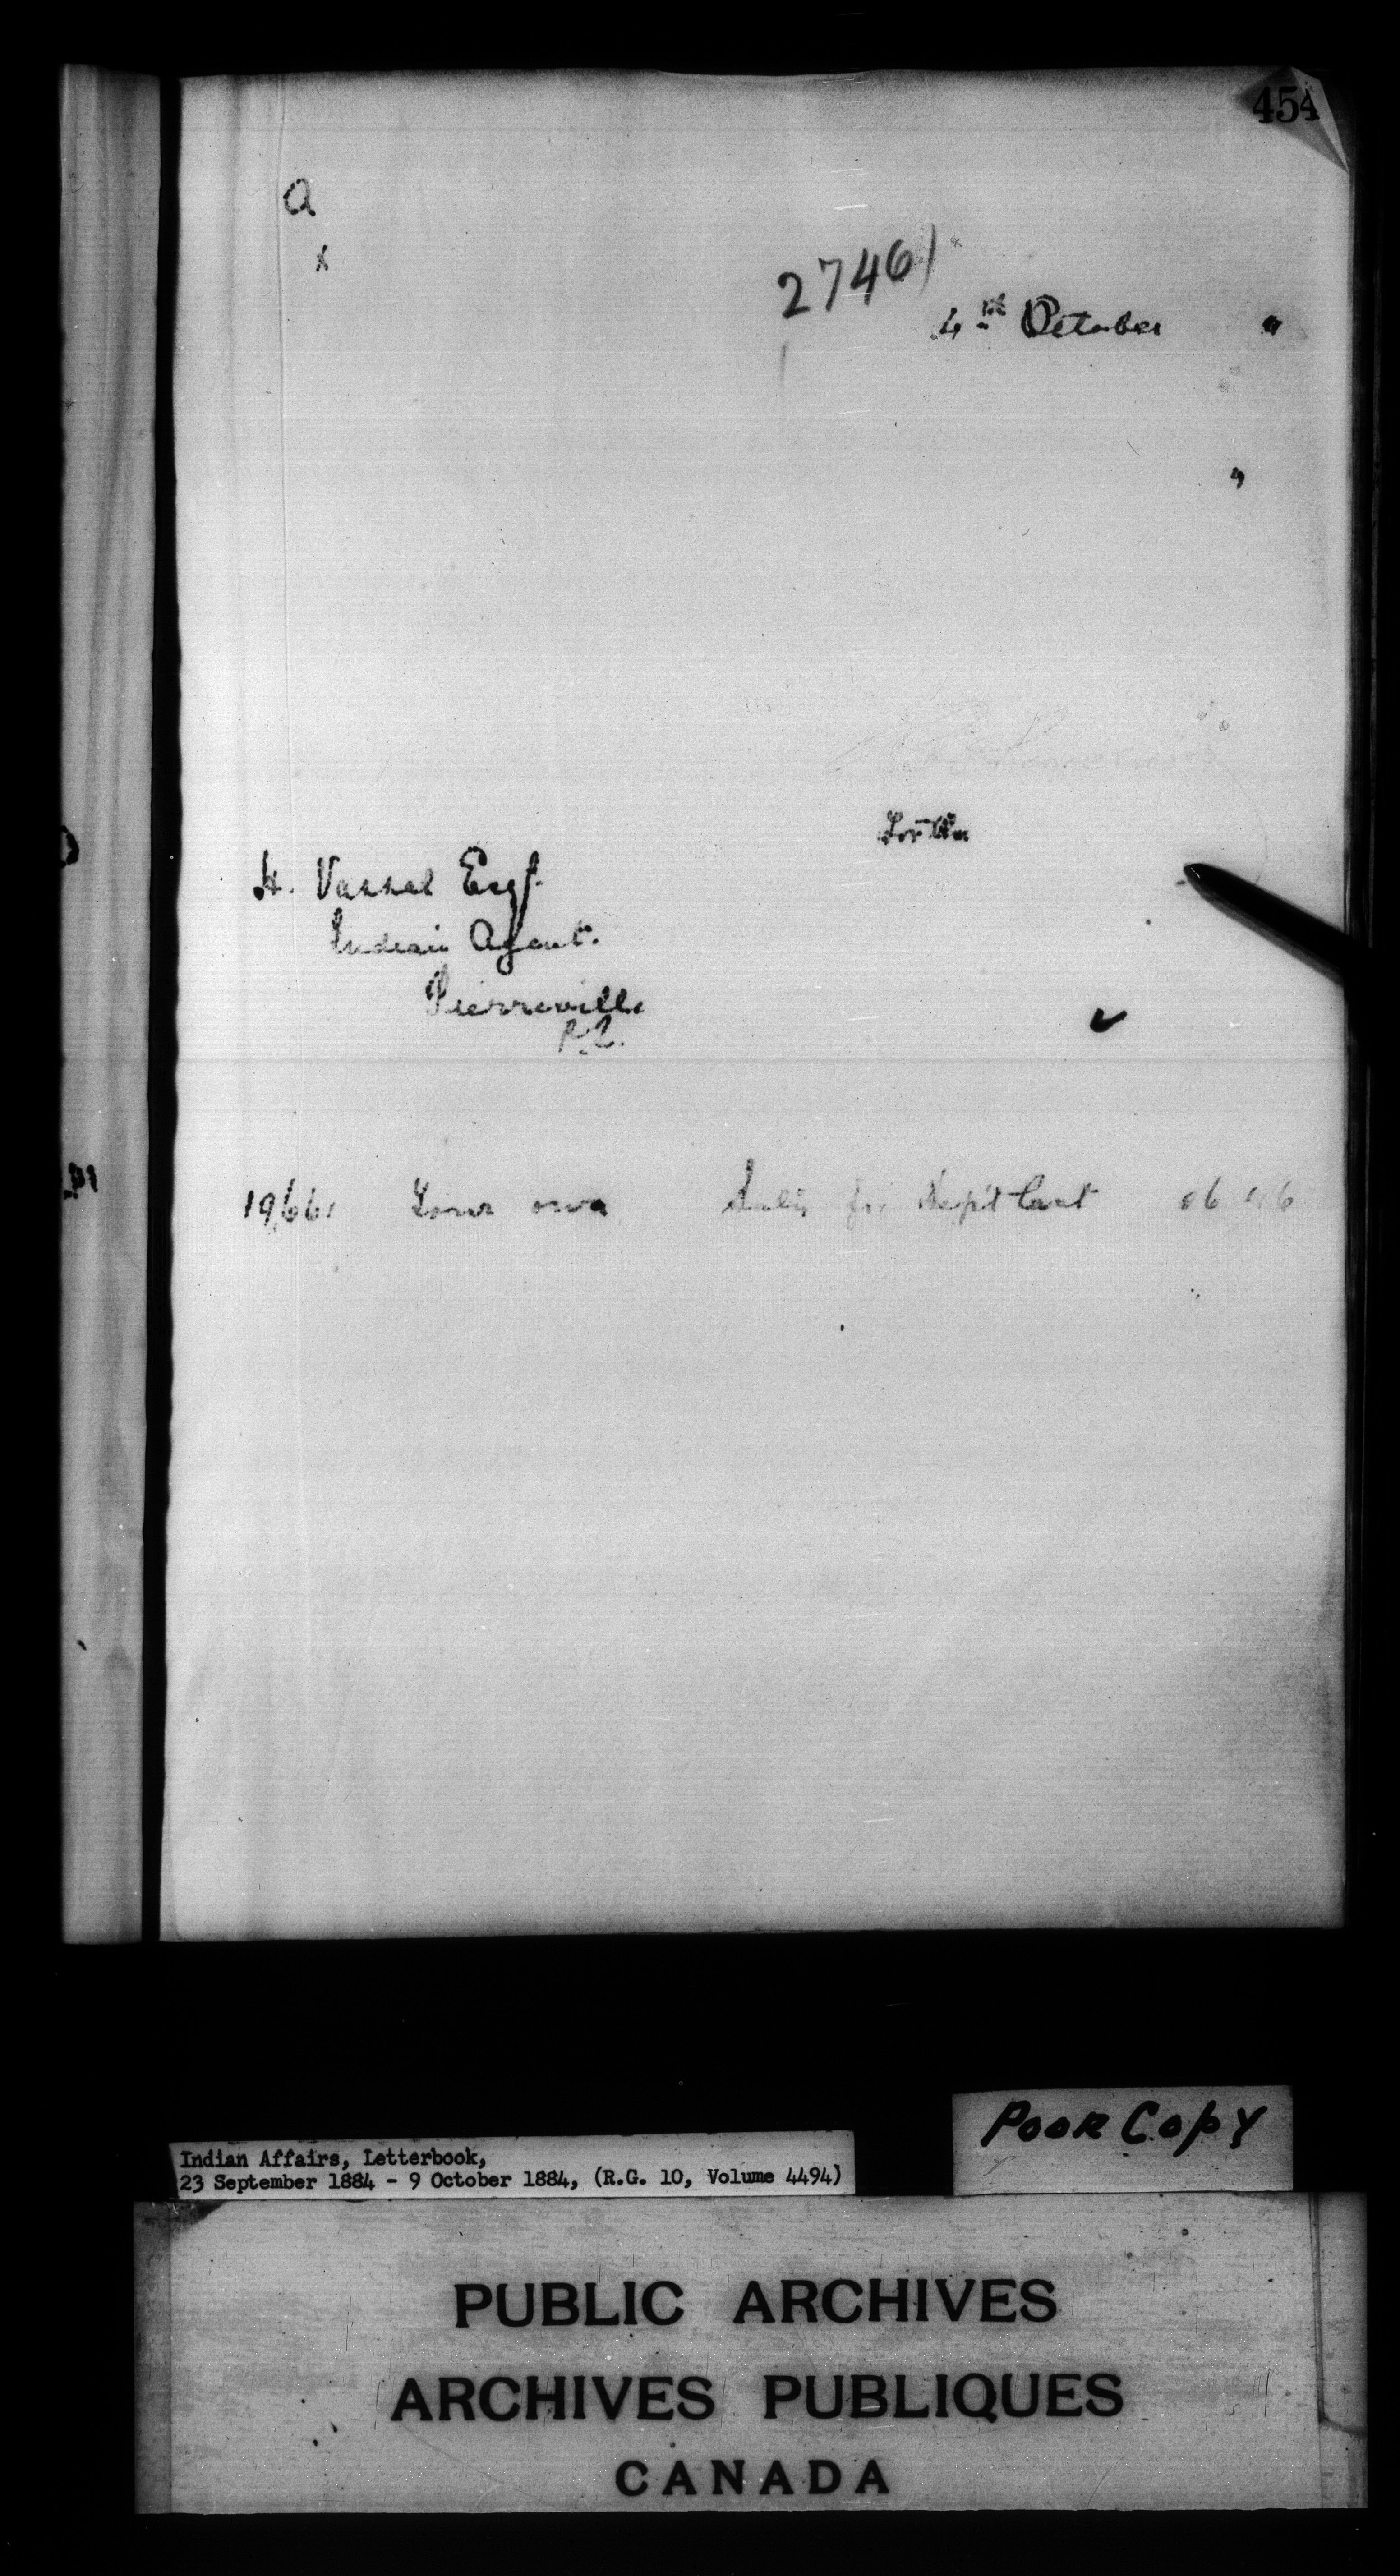 454
a
x
27461
4th October "
"
H. Vassal Esqr.
Indian Agent.
Pierreville
P.Q.
19,661 Your own for Dep't
Poor Copy
Indian Affairs, Letterbook,
23 September 1884 - 9 October 1884, (R.G. 10, Volume 4494)
PUBLIC ARCHIVES
ARCHIVES PUBLIQUES
CANADA